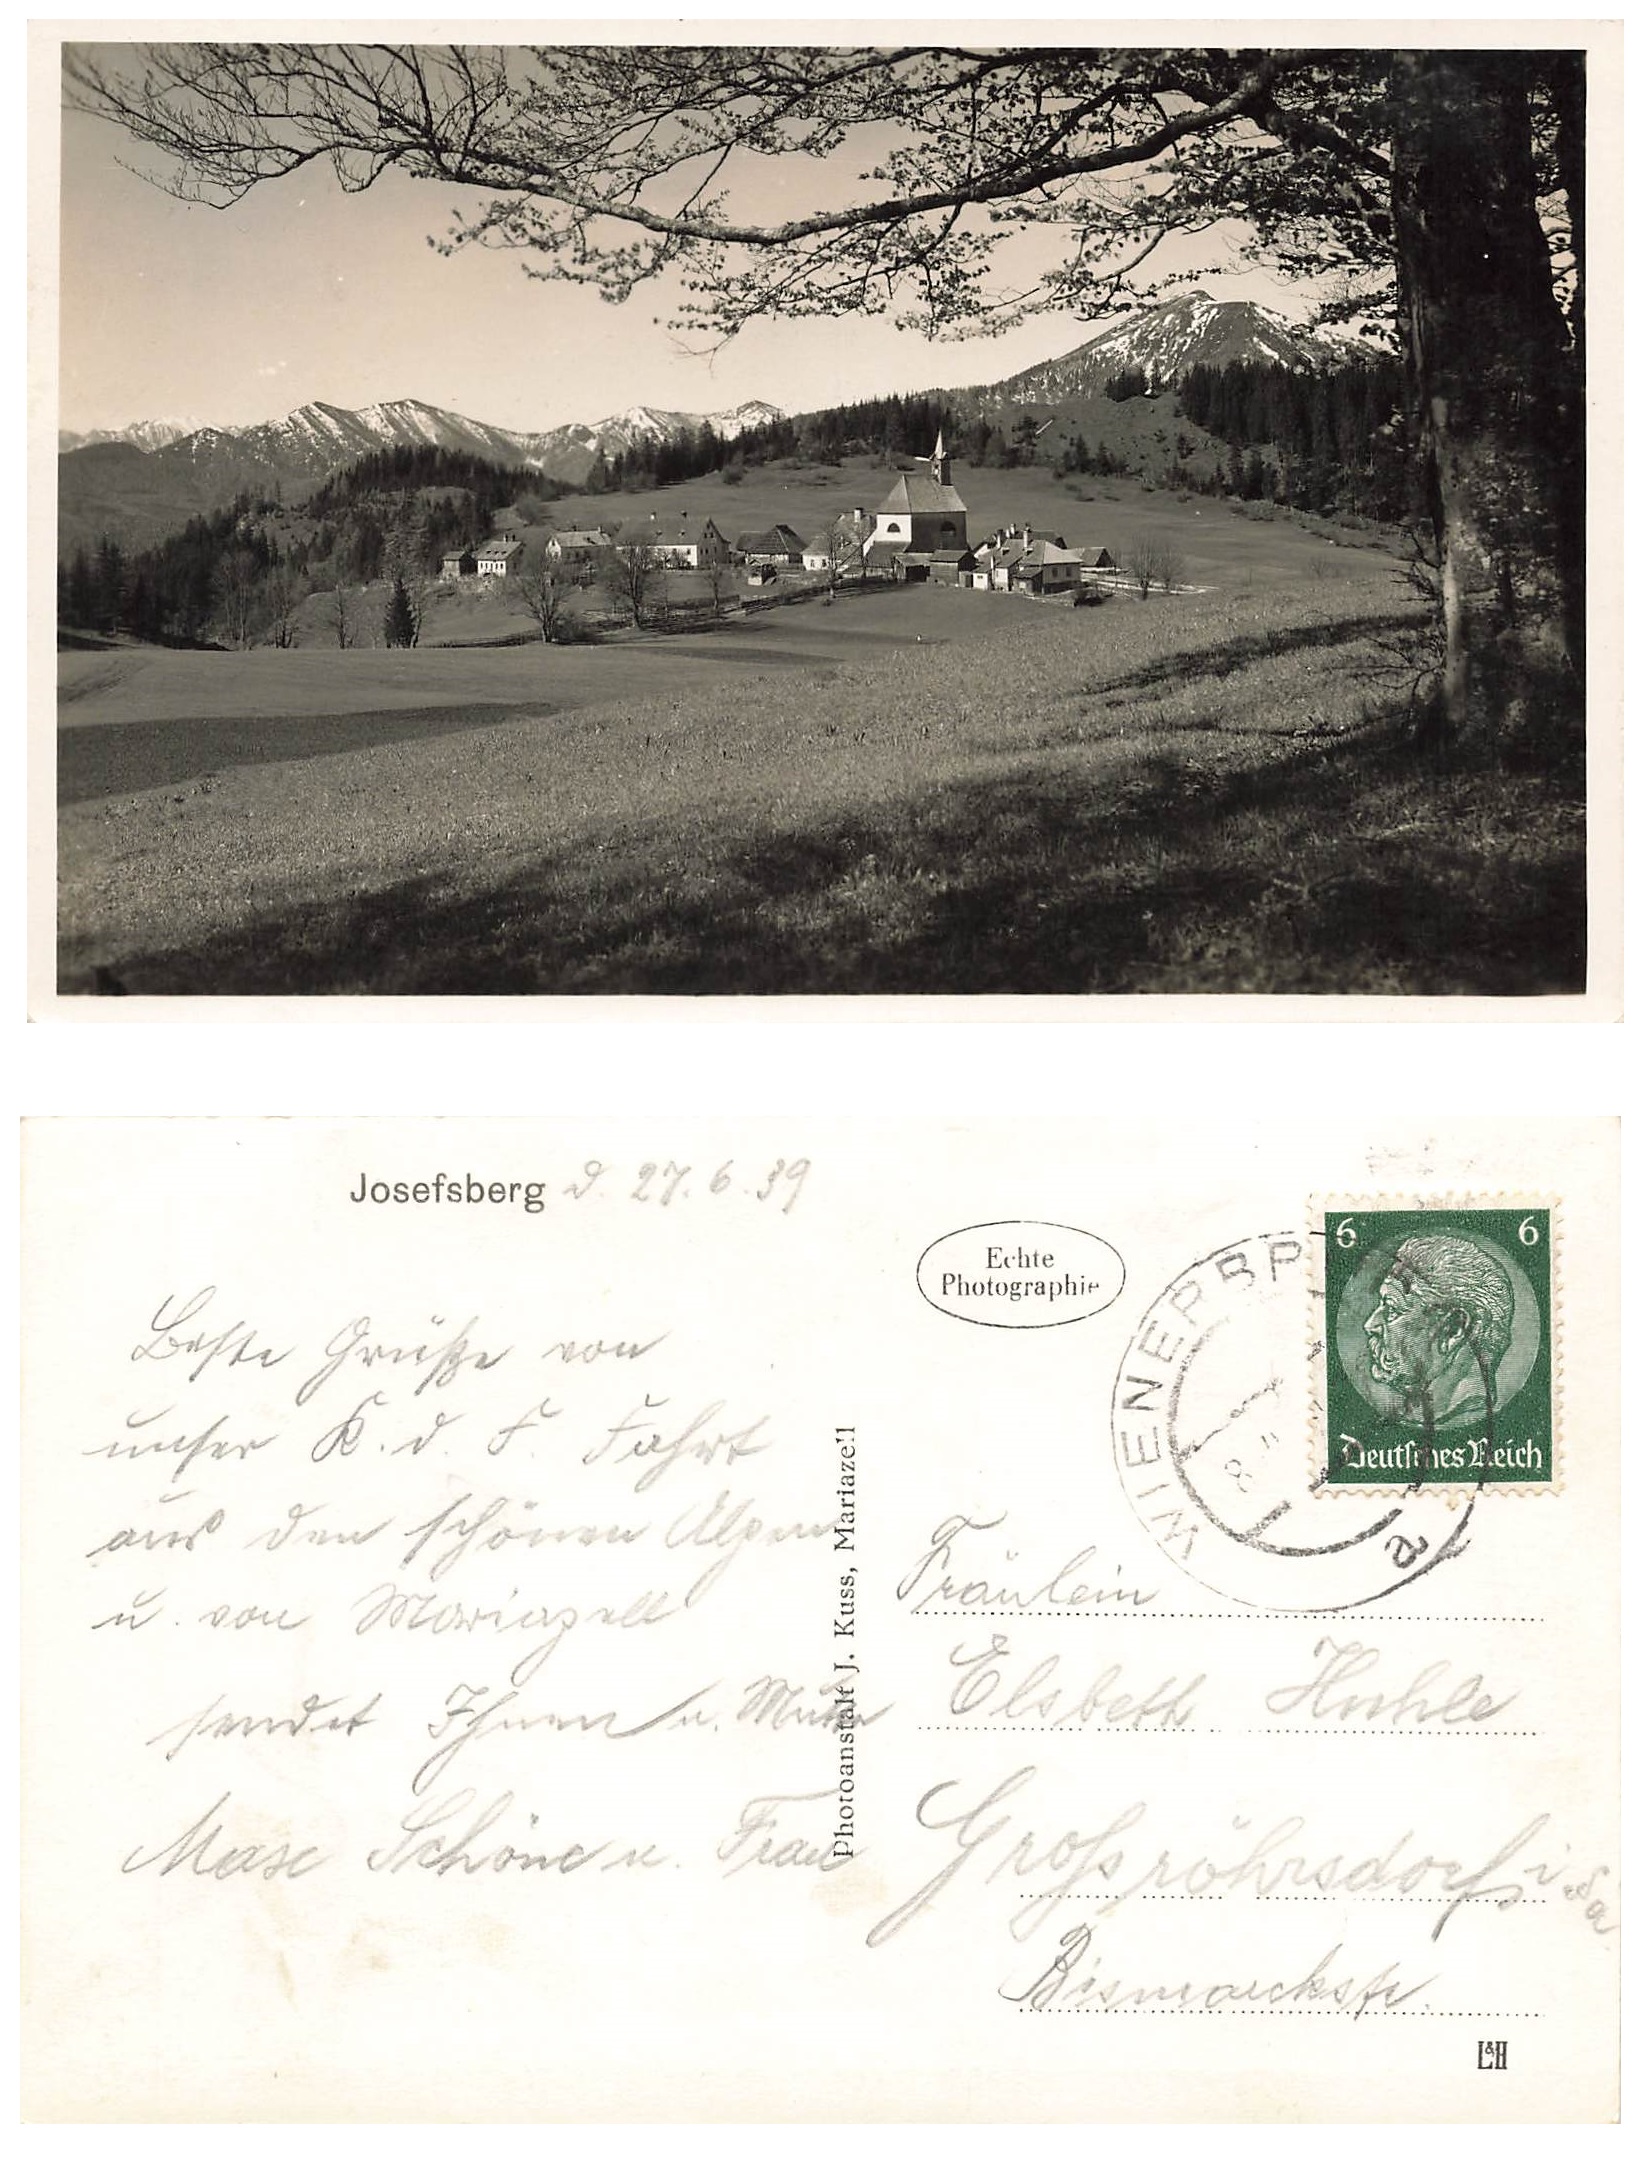 Josefsberg d. 27.6.39
Echte
Photographie
6 6
Deutsches Reich
WIENERBRUCK
a
Beste Grüße von
unser K.d.F. Fahrt
aus den schönen Alpen
u. von Mariazell
sendet Ihnen u. Mutter
Schöne u. Frau
Photoanstalt J. Kuss, Mariazell
Fräulein
Elsbeth Huhle
Großröhrsdorf i. Sa
Bismarckstr.
L&H